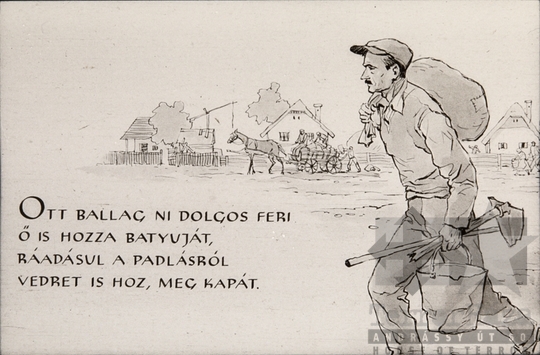 OTT BALLAG NI DOLGOS FERI
Ő IS HOZZA BATYUJÁT,
RÁADÁSUL A PADLÁSRÓL
VEDRET IS HOZ, MEG KAPÁT.
ANDRÁSSY ÚT 60
HOUSE OF TERROR